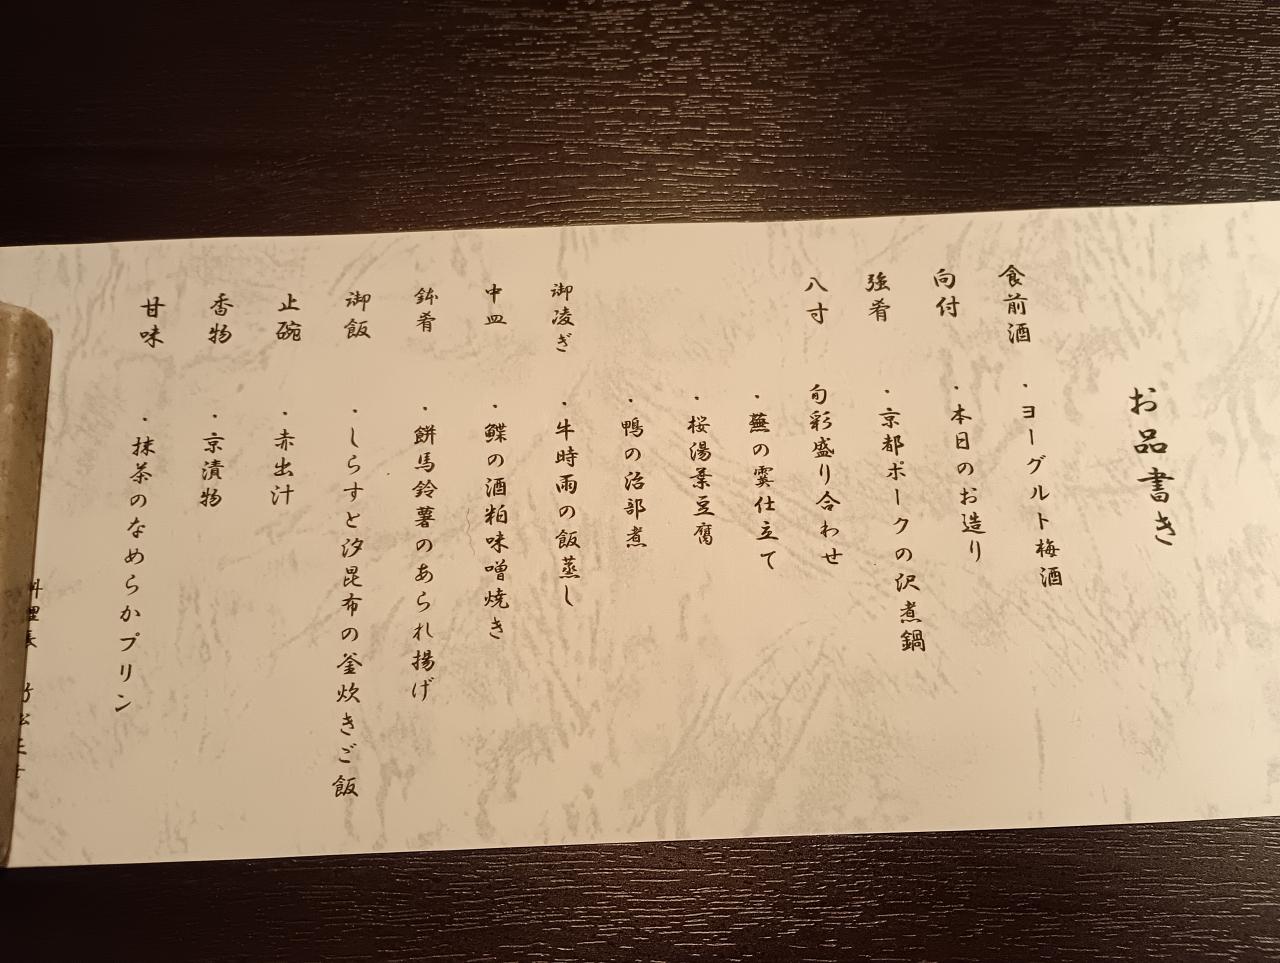 お品書き
食前酒 ・ヨーグルト梅酒
向付 ・本日のお造り
強肴 ・京都ポークの沢煮鍋
八寸 旬彩盛り合わせ
・蕪の霙仕立て
・桜湯葉豆腐
・鴨の治部煮
御凌ぎ ・牛時雨の飯蒸し
中皿 ・鰈の酒粕味噌焼き
鉢肴 ・餅馬鈴薯のあられ揚げ
御飯 ・しらすと汐昆布の釜炊きご飯
止碗 ・赤出汁
香物 ・京漬物
甘味 ・抹茶のなめらかプリン
料理長